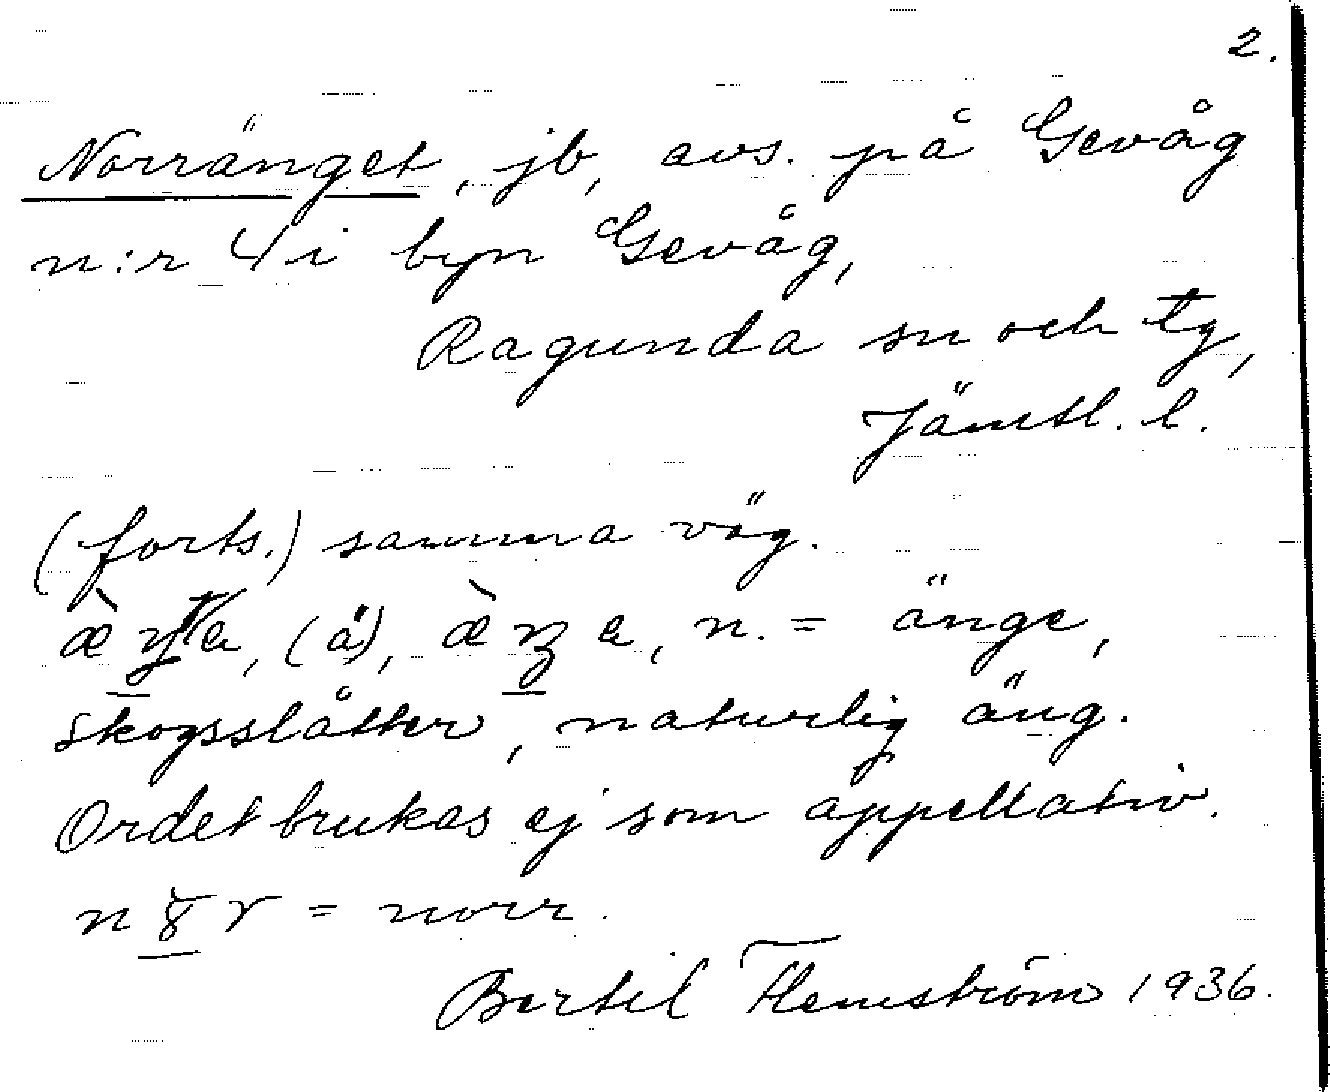 2.
Norränget, jb, avs. på Gevåg
n:r 4 i byn Gevåg,
Ragunda sn och tg,
Jämtl. l.
(forts.) samma väg.
n. = änge,
skogsslåtter, naturlig äng.
Ordet brukas ej som appellativ.
= norr.
Bertil Flemström 1936.